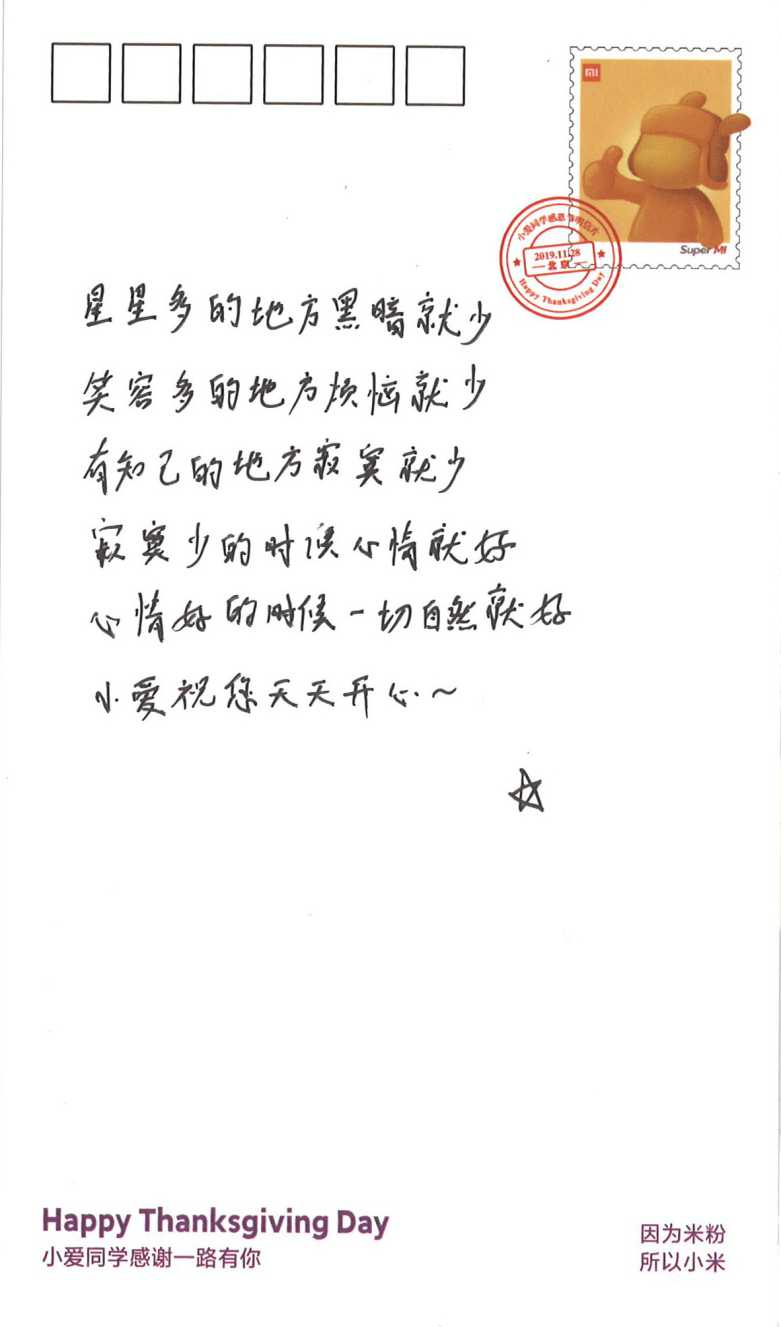 MI
Super MI
小爱同学感恩节明信片
2019.11.28
北京
Happy Thanksgiving Day
星星多的地方黑暗就少
笑容多的地方烦恼就少
有知己的地方寂寞就少
寂寞少的时候心情就好
心情好的时候一切自然就好
小爱祝您天天开心~
Happy Thanksgiving Day
小爱同学感谢一路有你
因为米粉
所以小米